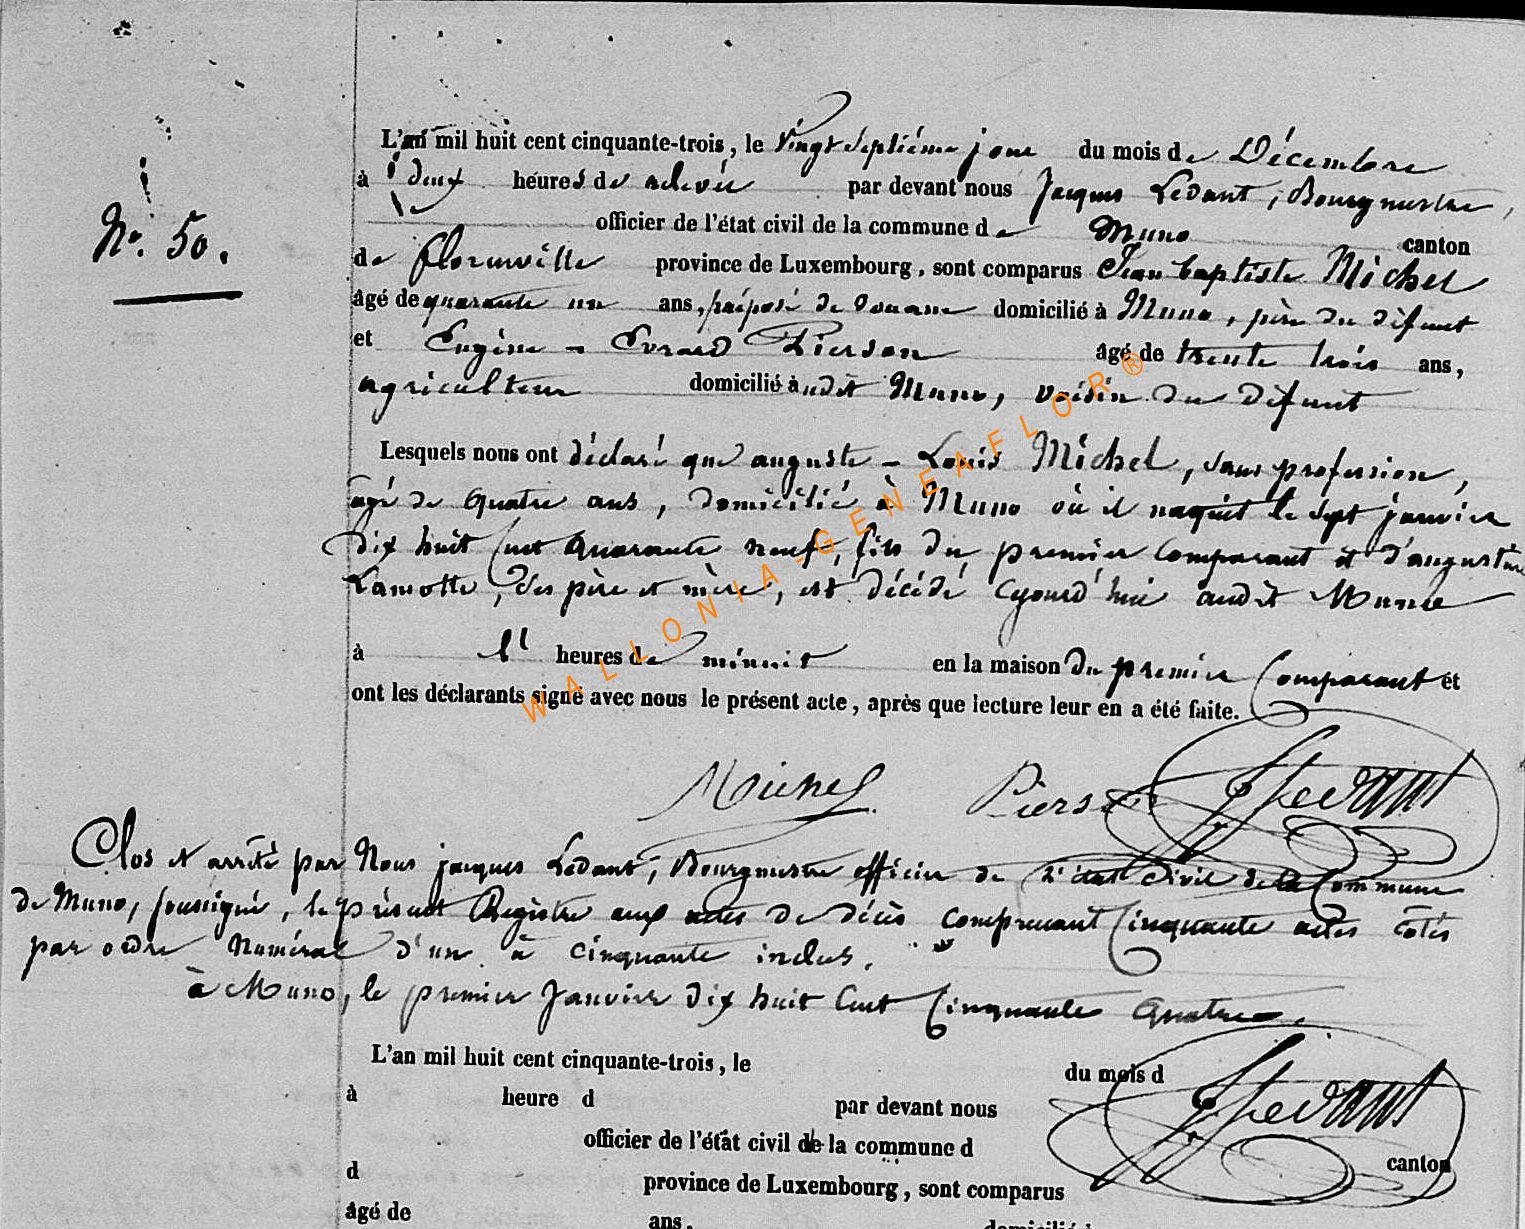 L'an mil huit cent cinquante-trois, le vingt septième jour du mois de Décembre
à deux heures de relevée par devant nous Jacques Ledant, Bourgmestre,
officier de l'état civil de la commune de Muno canton
de Florenville province de Luxembourg, sont comparus Jean baptiste Michel
âgé de quarante un ans, préposé de douane domicilié à Muno, père du défunt
et Eugène - Evrard Pierson âgé de trente trois ans,
agriculteur domicilié audit Muno, voisin du défunt
No. 50.
Lesquels nous ont déclaré que auguste - Louis Michel, sans profession,
agé de quatre ans, domicilié à Muno où il naquit le sept janvier
dix huit cent quarante neuf, fils du premier comparant et d'augustine
Lamotte, ses père et mère, est décédé cejourd'hui audit Muno
à l' heures de minuit en la maison du premier Comparant et
ont les déclarants signé avec nous le présent acte, après que lecture leur en a été faite.
Michel Pierson JLedant
Clos et arrêté par Nous jacques Ledant, Bourgmestre officier de l'état civil de la Commune
de Muno, soussigné, le présent Registre aux actes de décès comprenant Cinquante actes côtés
par ordre Numéral d'un à cinquante inclus.
à Muno, le premier Janvier dix huit Cent Cinquante quatre.
JLedant
L'an mil huit cent cinquante-trois, le du mois d
à heure d par devant nous
officier de l'état civil de la commune d canton
d province de Luxembourg, sont comparus
âgé de ans, domicilié à
WALLONIA-GENEAFLOR®